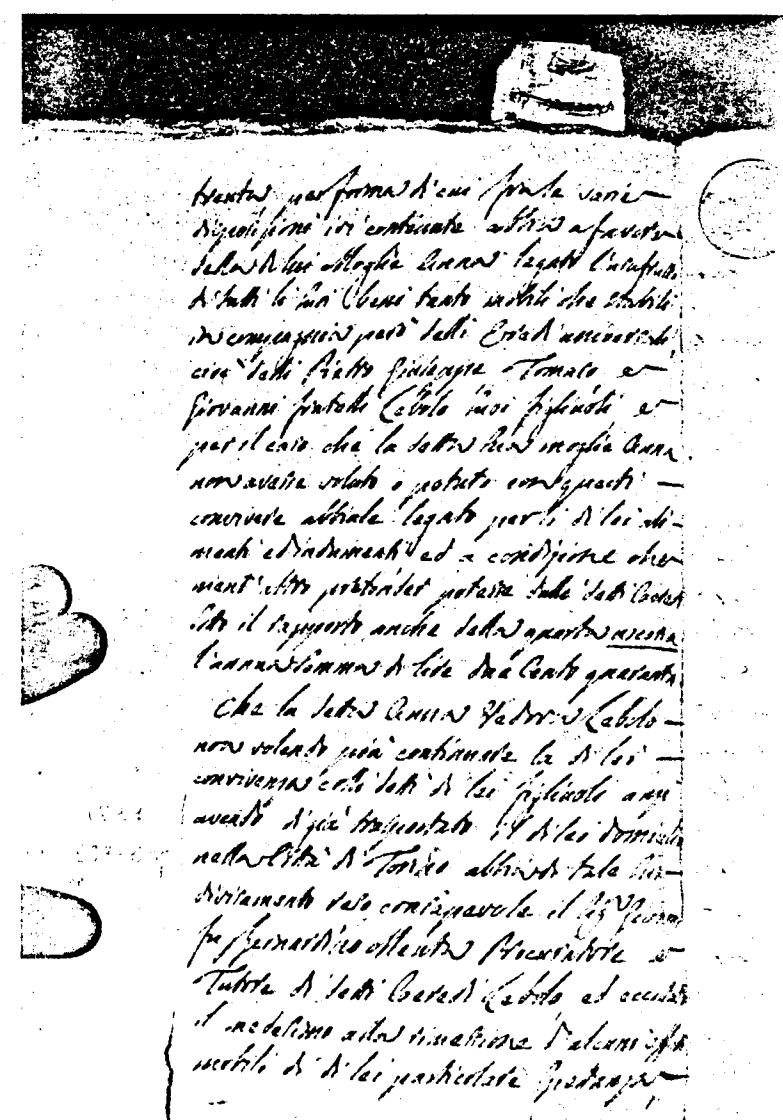 trenta per forma di cui fra le varie
disposizioni ivi contenute abbia a favore
della di lui Moglie Anna legato l'usufrutto
di tutti li suoi beni tanto mobili che stabili
in compagnia però delli Eredi universali
cioè delli Pietro Giuseppe Tomaso e
Giovanni fratelli Cebolo suoi figliuoli e
per il caso che la detta sua moglie Anna
non avesse voluto o potuto con questi
convivere abbiale legato per li di lei ali-
menti ed indumenti ed a condizione che
nient'altro pretender potesse dalle detti Coeredi
sotto il rapporto anche della quarta uxoria
l'annua somma di lire due Cento quaranta
Che la detta Anna Vedova Cebolo
non volendo più continuare la di lei
convivenza colli detti di lei figliuoli anzi
avendo di già trasportato il di lei domicilio
nella Città di Torino abbia di tale suo
divisamento reso consapevole il Sig.r
fu Bernardino Procuratore e
Tutore di detti Coeredi Cebolo ed eccitato
il medesimo alla rimessione d'alcuni effetti
mobili di di lei particolare spettanza